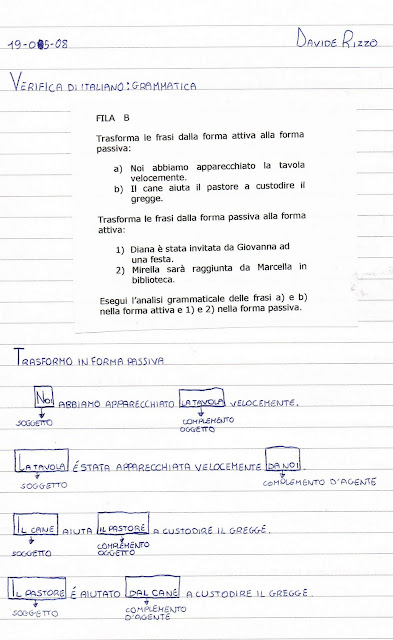 19-05-08 DAVIDE RIZZO
VERIFICA DI ITALIANO: GRAMMATICA
FILA B
Trasforma le frasi dalla forma attiva alla forma
passiva:
a) Noi abbiamo apparecchiato la tavola
velocemente.
b) Il cane aiuta il pastore a custodire il
gregge.
Trasforma le frasi dalla forma passiva alla forma
attiva:
1) Diana è stata invitata da Giovanna ad
una festa.
2) Mirella sarà raggiunta da Marcella in
biblioteca.
Esegui l'analisi grammaticale delle frasi a) e b)
nella forma attiva e 1) e 2) nella forma passiva.
TRASFORMO IN FORMA PASSIVA
NOI ABBIAMO APPARECCHIATO LA TAVOLA VELOCEMENTE.
SOGGETTO COMPLEMENTO
OGGETTO
LA TAVOLA É STATA APPARECCHIATA VELOCEMENTE DA NOI.
SOGGETTO COMPLEMENTO D'AGENTE
IL CANE AIUTA IL PASTORE A CUSTODIRE IL GREGGE.
SOGGETTO COMPLEMENTO
OGGETTO
IL PASTORE É AIUTATO DAL CANE A CUSTODIRE IL GREGGE.
SOGGETTO COMPLEMENTO
D'AGENTE